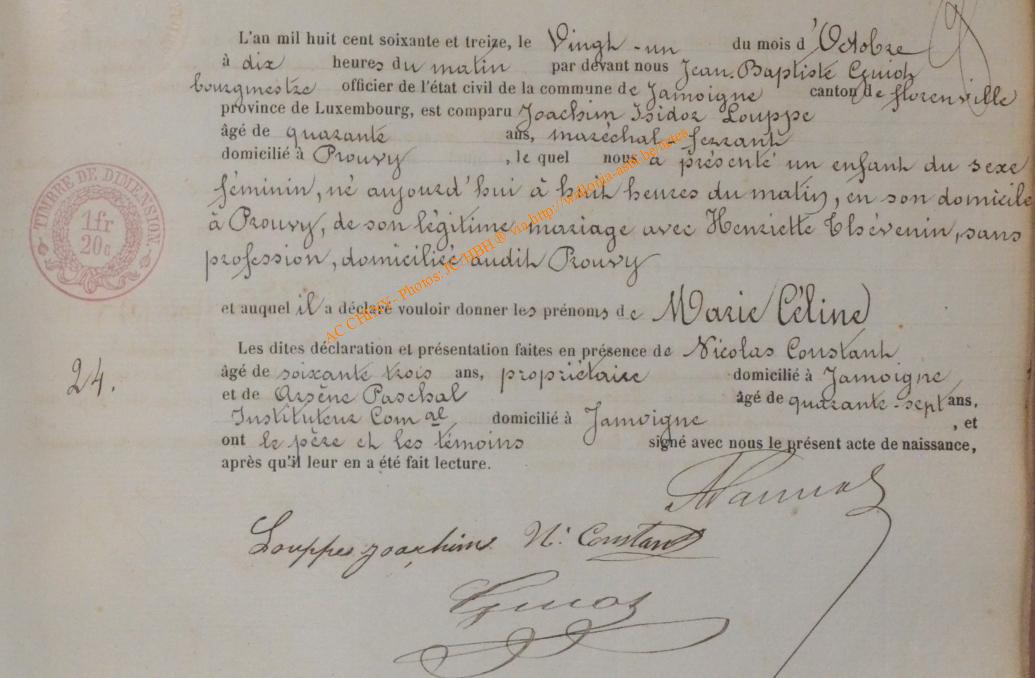 L'an mil huit cent soixante et treize, le Vingt-un du mois d'Octobre
à dix heures du matin par devant nous Jean-Baptiste Guiot
bourgmestre officier de l'état civil de la commune de Jamoigne canton de florenville
province de Luxembourg, est comparu Joachim Isidor Louppe
âgé de quarante ans, maréchal-ferrant
domicilié à Prouvy, le quel nous a présenté un enfant du sexe
féminin, né aujourd'hui à huit heures du matin, en son domicile
à Prouvy, de son légitime mariage avec Henriette Thévenin, sans
profession, domiciliée audit Prouvy
et auquel il a déclaré vouloir donner les prénoms de Marie Céline
Les dites déclaration et présentation faites en présence de Nicolas Constant
âgé de soixante trois ans, propriétaire domicilié à Jamoigne
et de Arsène Paschal âgé de quarante-sept ans,
Instituteur Com al domicilié à Jamoigne, et
ont le père et les témoins signé avec nous le présent acte de naissance,
après qu'il leur en a été fait lecture.
Louppe Joachim N. Constant
Guiot
24.
TIMBRE DE DIMENSION.
1 fr
20 c
AC CHINY - Photos: JC-HBH ® via http://wallonia-asbl.be/actes